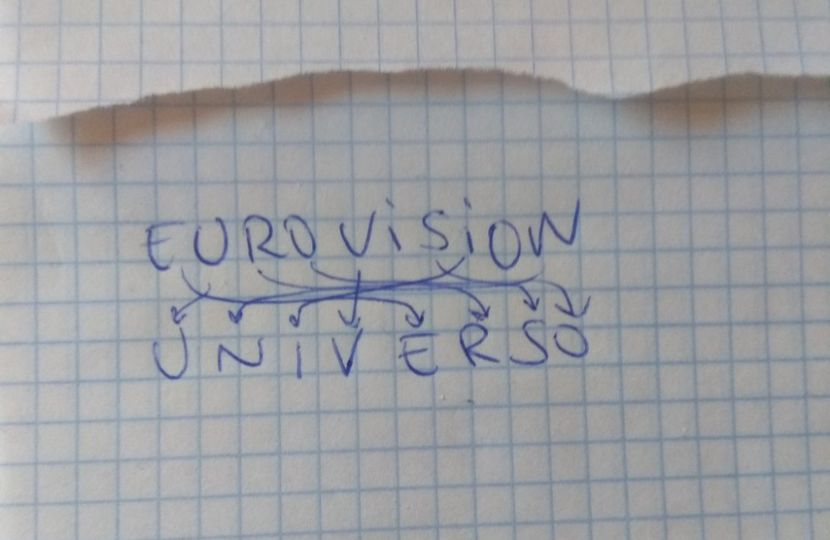 EUROViSiON
UNIVERSO